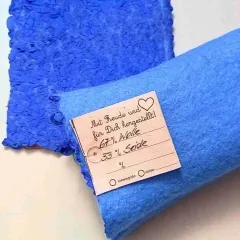 Mit Freude und
für Dich hergestellt!
67 % Wolle
33 % Seide
%